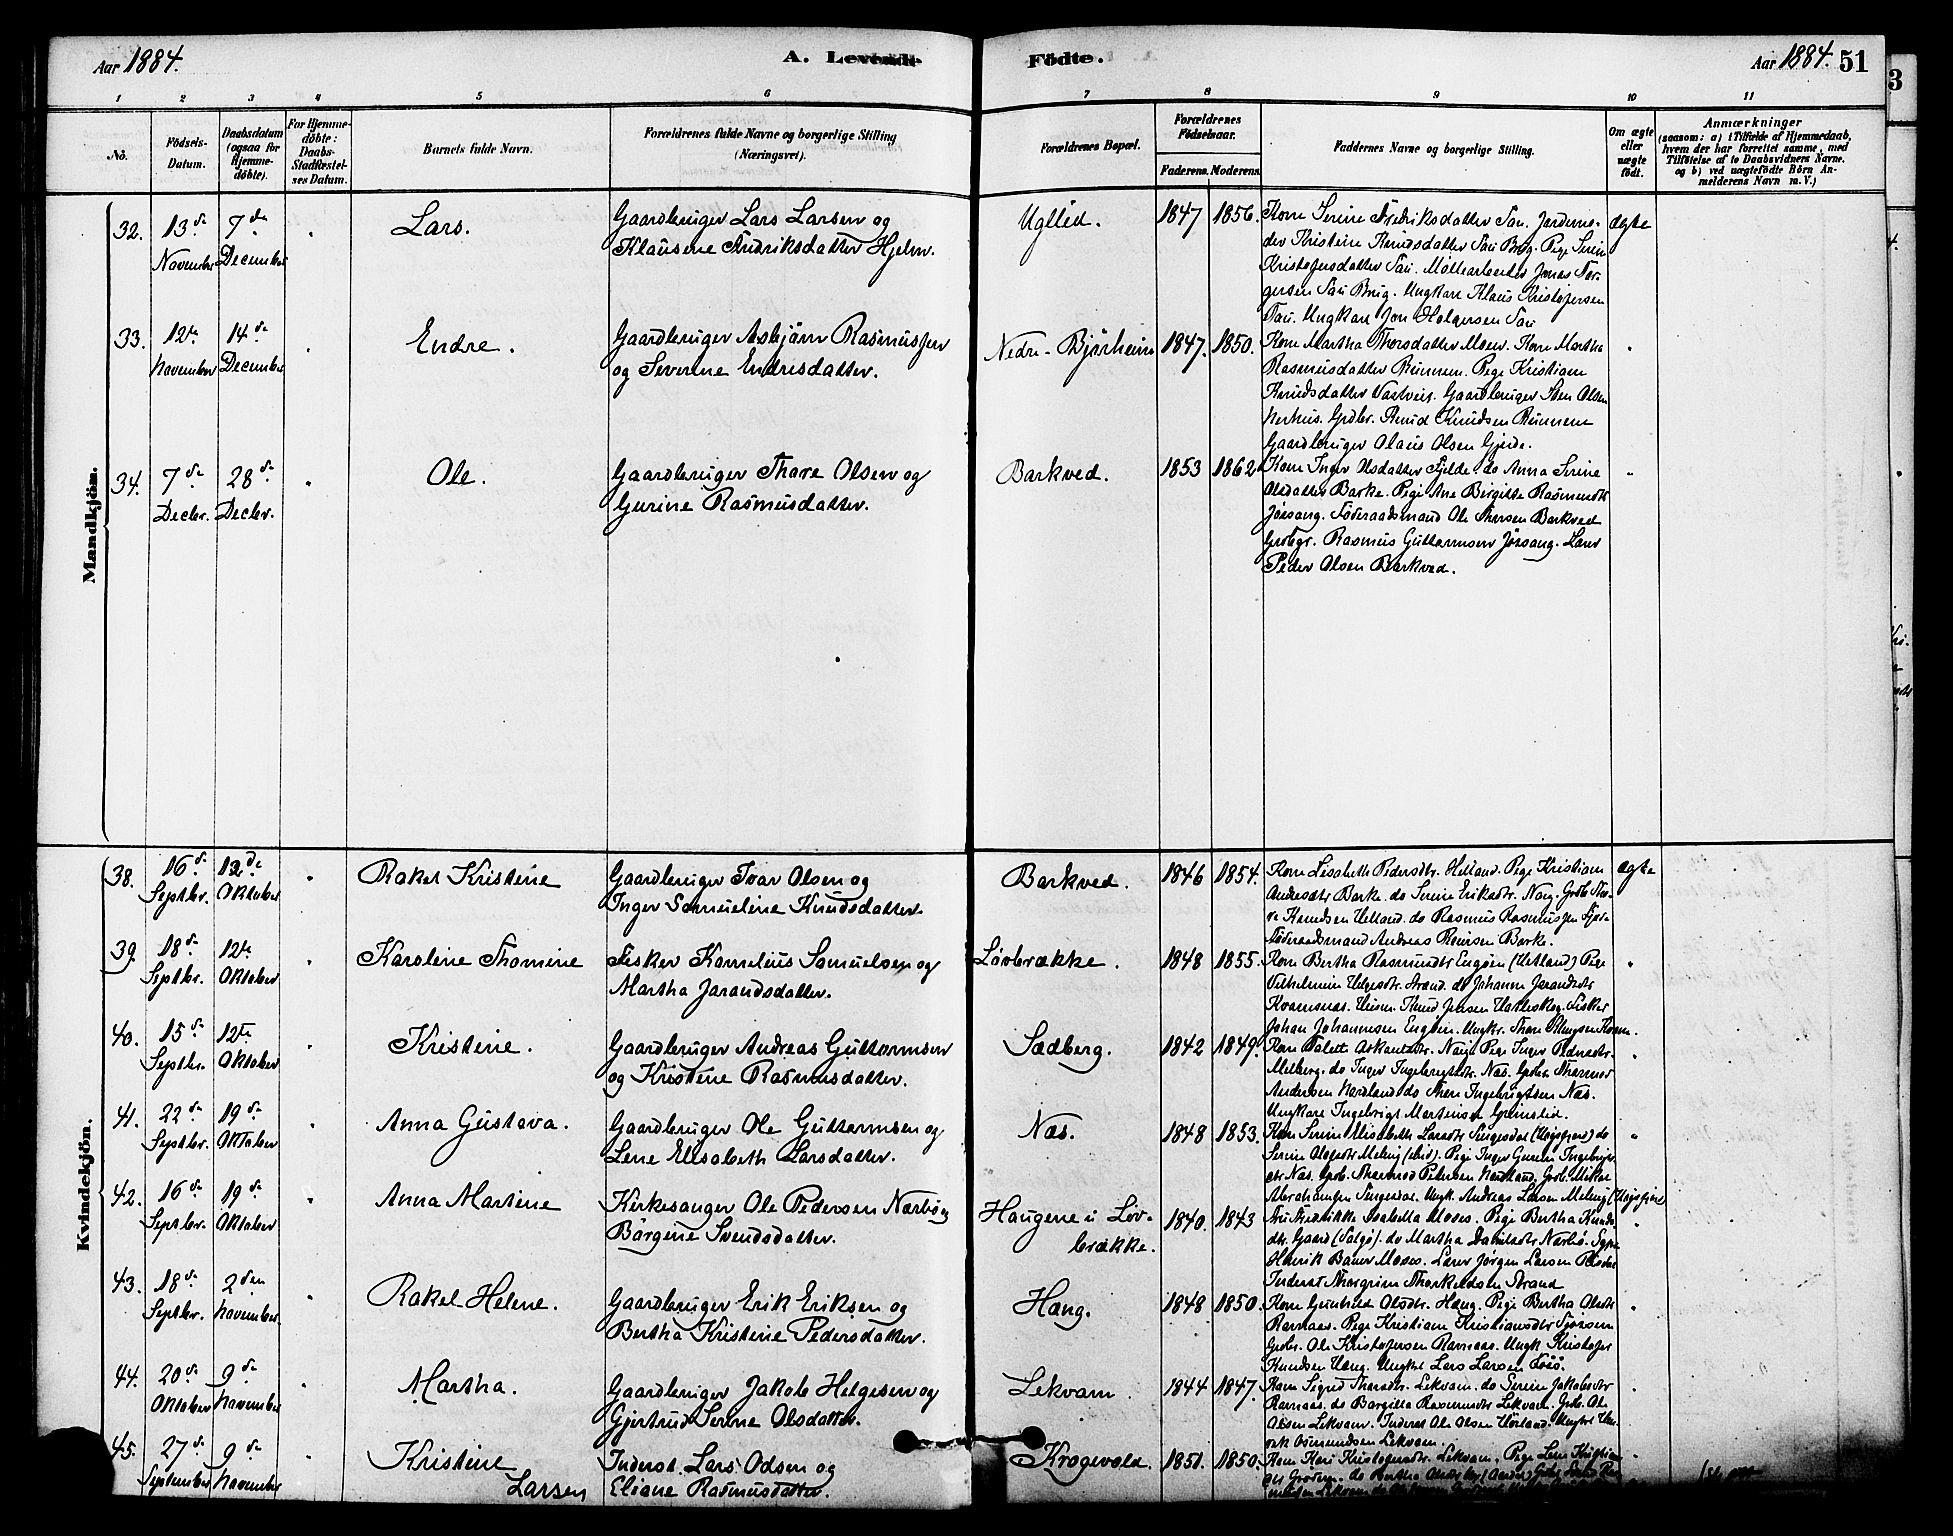 Aar 1884.
A. Levende Födte.
Aar 1884. 51
3
1 2 3 4 5 6 7 8 9 10 11
No.
Födsels-
Datum.
Daabsdatum
(ogsaa for
Hjemme-
döbte).
For Hjemme-
döbte:
Daabs-
Stadfæstel-
ses Datum.
Barnets fulde Navn.
Forældrenes fulde Navne og borgerlige Stilling
(Næringsvei).
Forældrenes Bopæl.
Forældrenes
Födselsaar.
Faderens. Moderens.
Faddernes Navne og borgerlige Stilling.
Om ægte
eller
uægte
födt.
Anmærkninger
(saasom: a) i Tilfælde af Hjemmedaab,
hvem der har forrettet samme, med
Tilföielse af to Daabsvidners Navne.
og b) ved uægtefödte Börn An-
melderens Navn m. V.)
Mandkjön.
32. 13de November 7de December Lars.
Gaardbruger Lars Larsen og
Klausine Fredriksdatter Hjelm.
Uglled. 1847 1856. ægte
Kone Serine Fredriksdatter Tau. Jordemo-
der Kristine Knudsdatter Tau Brug. Pige Serine
Kristofersdatter Tau. Møllearbeider Jonas Tor-
gersen Tau Brug. Ungkarl Klaus Kristofersen
Tau. Ungkarl Jon Holgersen Tau
33. 12te November 14de December Endre.
Gaardbruger Asbjörn Rasmussen
og Severine Endresdatter.
Nedre-Bjørheim 1847. 1850.
Kone Martha Thorsdatter Moen. Kone Martha
Rasmusdatter Runnen. Pige Kristiane
Knudsdatter Gaardbruger Sven Olsen
Nerhus. Grdbr. Knud Knudsen Runnene
Gaardbruger Olaus Olsen Gjerde.
34. 7de Decbr. 28de Decbr. Ole.
Gaardbruger Thore Olsen og
Gurine Rasmusdatter.
Barkved. 1853 1862
Kone Inger Olsdatter Fjelde. do Anna Serine
Olsdatter Barke. Pige Ane Birgitte Rasmusdtr
Jøssang. Föderaadsmand Ole Thorsen Barkved
Grdbgr. Rasmus Guttormsen Jøssang. Lærer
Peder Olsen Barkved.
Kvindekjön.
38. 16de Septbr. 12de Oktober Rakel Kristine
Gaardbruger Ivar Olsen og
Inger Samueline Knudsdatter.
Barkved. 1846 1854. ægte
Kone Lisabeth Pedersdtr. Helland. Pige Kristiane
Andersdtr Barke. do Serine Eriksdtr. Nag. Grdb. Tho-
re Knudsen Helland. do Rasmus Rasmussen
Föderaadsmand Andreas Barke.
39. 18de Septbr. 12te Oktober Karoline Thomine
Fisker Kornelius Samuelsen og
Martha Jarandsdatter.
Løvbrække. 1848 1855.
Kone Bertha Rasmusdtr Engøen (Hetland) Pige
Vilhelmine Helgesdtr. Strand. do Johanne Jarandsdtr
Kvamsnæs. Husm. Knud Jensen Fisker
Johan Johannesen Engøen. Ungkr. Thore
40. 15de Septbr. 12te Oktober Kristine.
Gaardbruger Andreas Guttormsen
og Kristine Rasmusdatter.
Sædberg. 1842 1849.
Kone Pige Inger Pedersdtr.
Melberg. do Inger Ingebrigtsdtr. Næs. Grdbr. Thormod
Andersen Nordland do Thore Ingebrigtsen Næs.
Ungkarl Ingebrigt Martinsen Grimslid.
41. 22de Septbr. 19de Oktober Anna Gustava.
Gaardbruger Ole Guttormsen og
Lene Elisabeth Larsdatter.
Næs. 1848 1853.
Kone Serine Elisabeth Larsdtr Tengesdal (Høgsfjord) do
Serine Olsdtr Meling (ibid). Pige Inger Gurine Ingebrigts-
dtr Næs. Grdb. Thormod Pedersen Nordland. Grdb. Mikkel
Abrahamsen Tengesdal. Ungk. Andreas Larsen Meling (Høgsfjord
42. 16de Septbr. 19de Oktober Anna Martine
Kirkesanger Ole Pedersen Nærbö og
Börgine Svendsdatter.
Haugene i Løv-
brække. 1840 1843
Fru Fredrikke Isabella Moses. Pige Bertha Knuds-
dtr. Gaard (Talgø). do Martha Danielsdtr Nærbø.
Henrik Bauer Moses. Lærer Jørgen Larsen
Inderst Thorgrim Thorkeldsen Strand
43. 18de Septbr. 2den November Rakel Helene.
Gaardbruger Erik Eriksen og
Bertha Kristine Pedersdatter.
Hæng. 1848 1850.
Kone Gunhild Olsdtr. Hæng. Pige Bertha Olsdtr
Ramnaas. Pige Kristiane Kristiansdtr
Grdbr. Ole Kristofersen Ramnaas. Ungk Kristofer
Knudsen Hæng. Ungkrl Lars Larsen
44. 20de Oktober 9de November Martha.
Gaardbruger Jakob Helgesen og
Gjertrud Serine Olsdatter.
Lekvam 1844 1847.
Kone Sigrid Thorsdtr. Lekvam. do Serine Jakobsdtr
Ramnaas. do Bergitta Rasmusdtr Lekvam. Grdb. Ole
Olsen Lekvam. Inderst Ole Olsen Ungkrl Hen-
rik Osmundsen Lekvam
45. 27de September 9de November Kristine
Larsen
Inderst. Lars Odsen og
Eliane Rasmusdatter.
Krogevold. 1851. 1850.
Kone Kari Kristofersdtr. Lekvam. Pige Lene Kristian